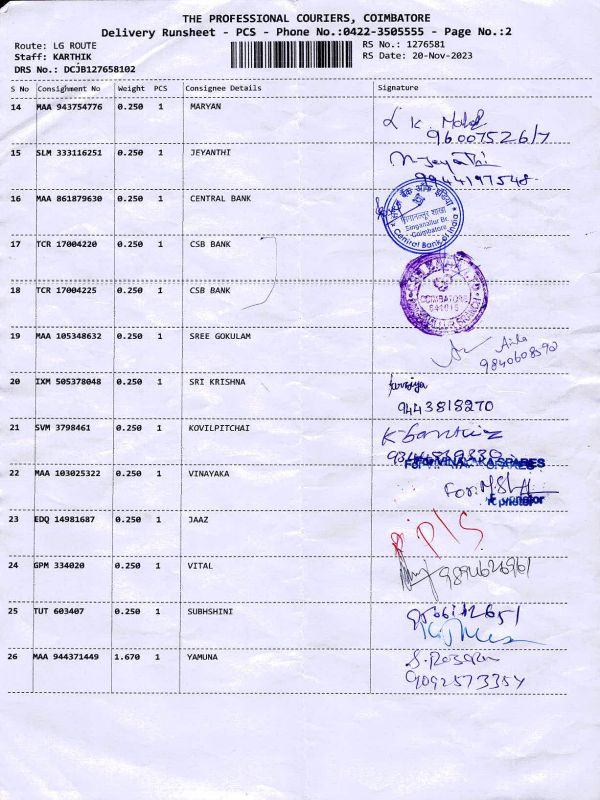 THE PROFESSIONAL COURIERS, COIMBATORE
Delivery Runsheet - PCS - Phone No.:0422-3505555 - Page No.:2
Route: LG ROUTE
Staff: KARTHIK
DRS No.: DCJB127658102
RS No.: 1276581
RS Date: 20-Nov-2023
S No Consignment No Weight PCS Consignee Details Signature
14 MAA 943754776 0.250 1 MARYAN
15 SLM 333116251 0.250 1 JEYANTHI
9944197548
16 MAA 861879630 0.250 1 CENTRAL BANK
Singanallur Br.
Coimbatore
Central Bank of India
17 TCR 17004220 0.250 1 CSB BANK
18 TCR 17004225 0.250 1 CSB BANK
COIMBATORE
641015
19 MAA 105348632 0.250 1 SREE GOKULAM
20 IXM 505378048 0.250 1 SRI KRISHNA
9443818270
21 SVM 3798461 0.250 1 KOVILPITCHAI
22 MAA 103025322 0.250 1 VINAYAKA
For VINAYAKA SPARES
For.
23 EDQ 14981687 0.250 1 JAAZ
P/S
24 GPM 334020 0.250 1 VITAL
25 TUT 603407 0.250 1 SUBHSHINI
26 MAA 944371449 1.670 1 YAMUNA
9092573354